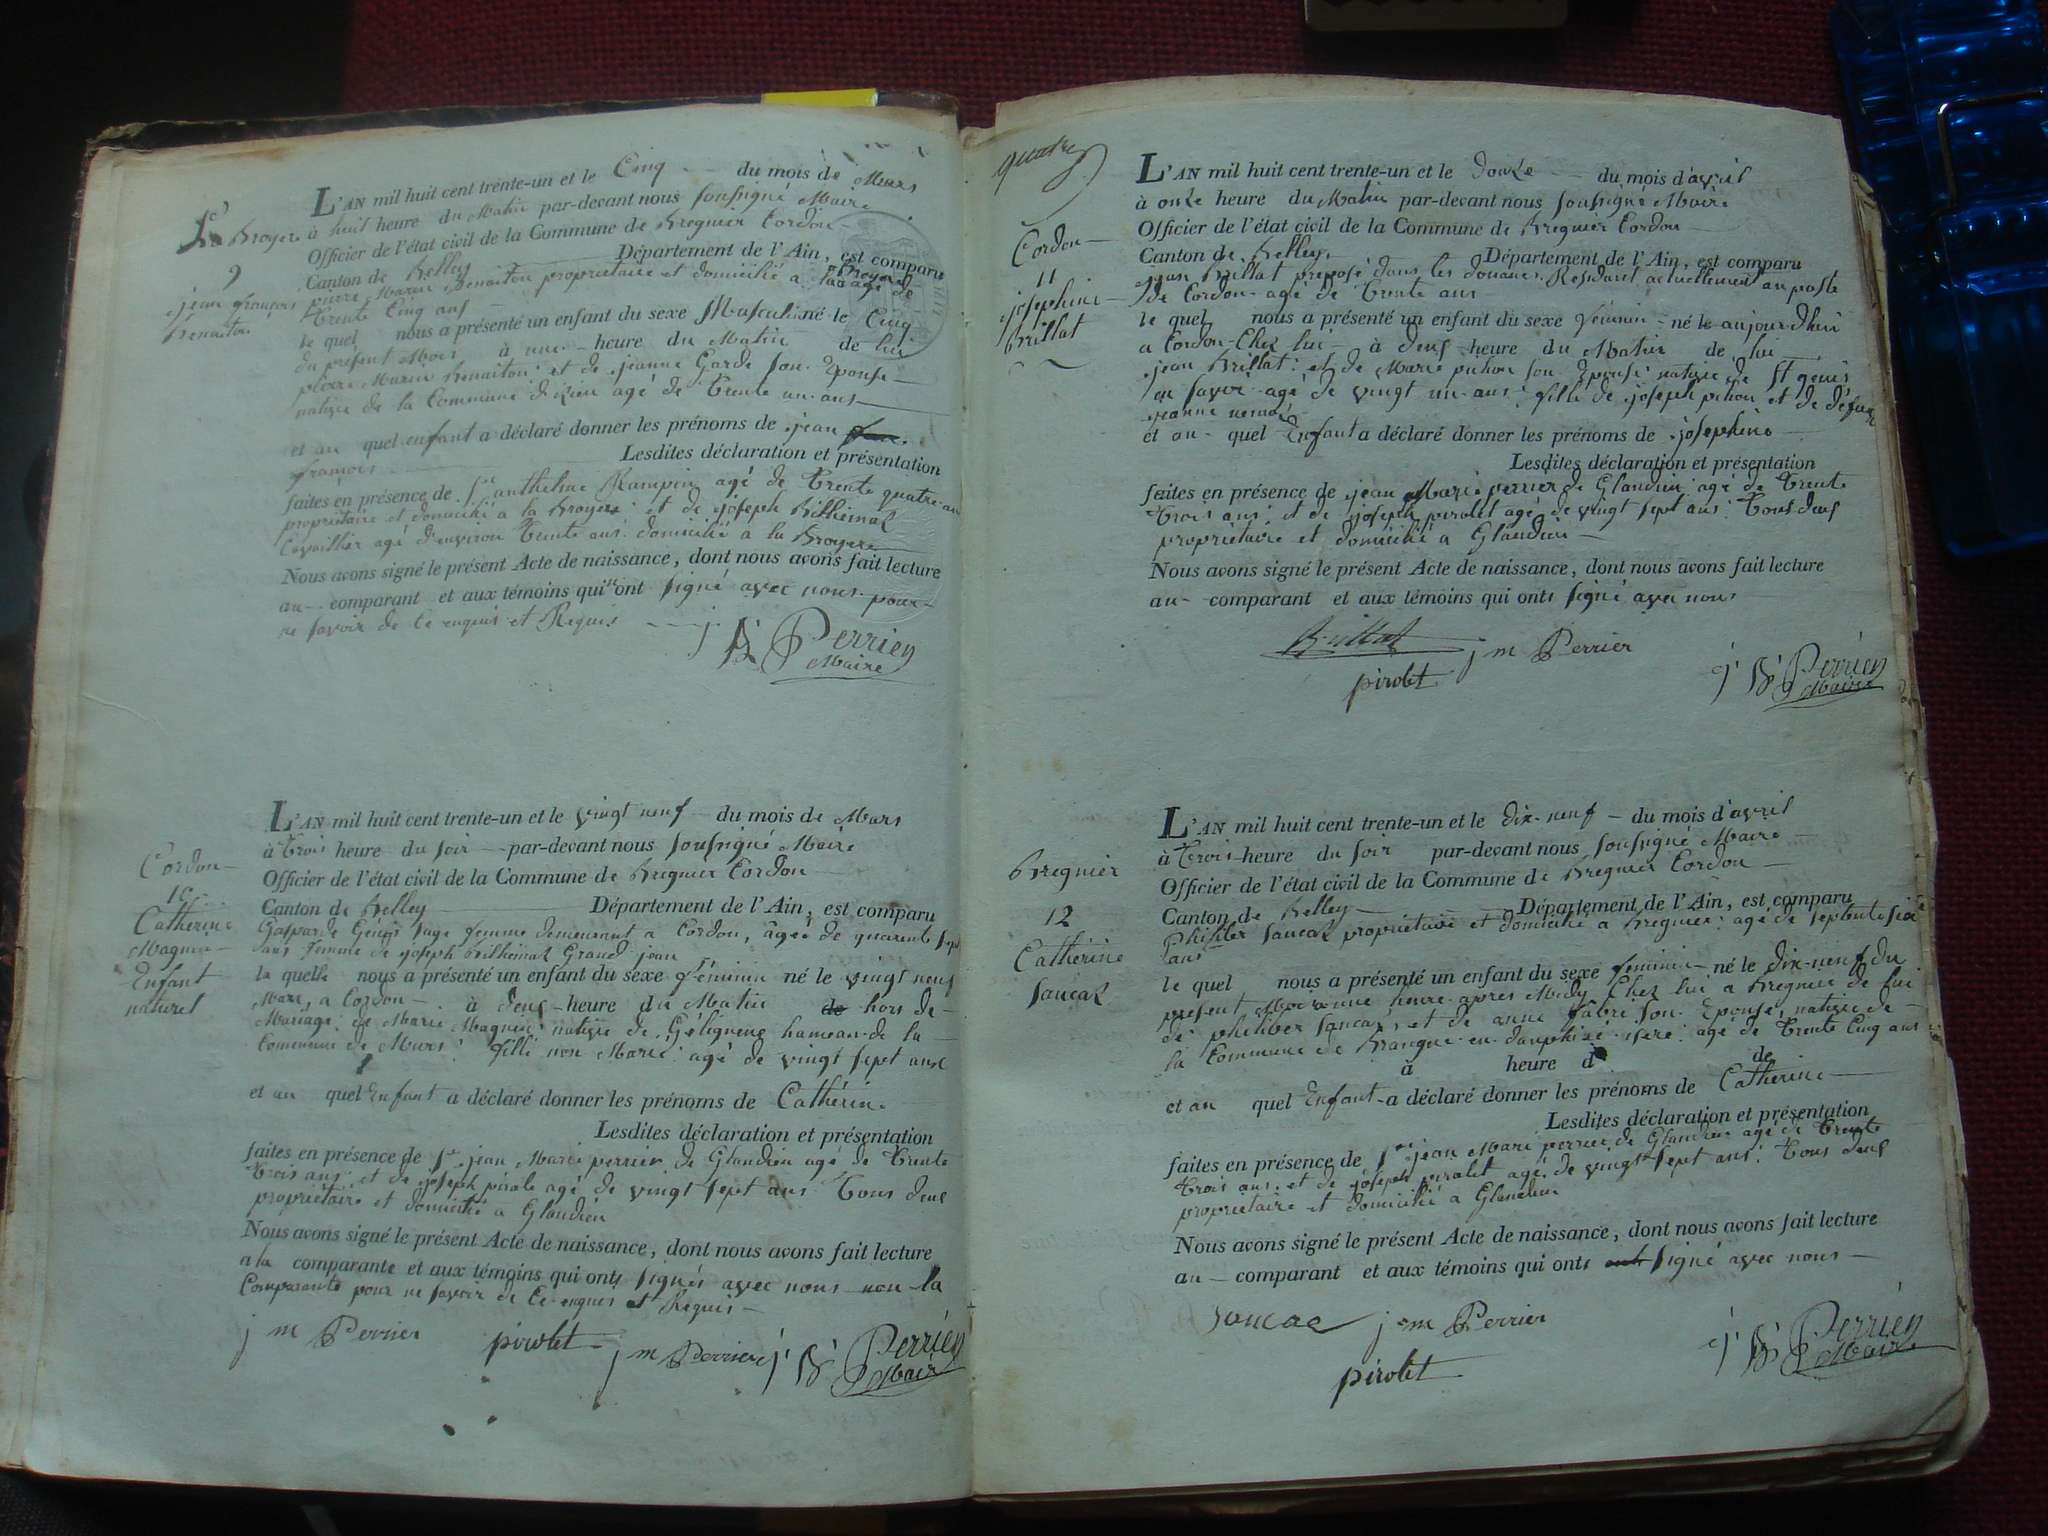 La Broyere
9
jean françois
Benaiton
L'AN mil huit cent trente-un et le Cinq du mois de Mars
à huit heure du Matin par-devant nous soussigné Maire
Officier de l'état civil de la Commune de Bregnier Cordon
Canton de Belley Département de l'Ain, est comparu
pierre Marin Benaiton proprietaire et domicilié a la Broyere agé de
Trente Cinq ans
le quel nous a présenté un enfant du sexe Masculin né le Cinq
du présent Mois à une heure du Matin de lui
pierre Marin Benaiton et de jeanne Garde son Epouse
native de la Commune d'izieu agé de Trente un ans
et au quel enfant a déclaré donner les prénoms de jean
françois
Lesdites déclaration et présentation
faites en présence de Sr anthelme Rampin agé de Trente quatre an
propriétaire et domicilié a la Broyere et de joseph Billiemaz
Cavaillier agé d'environ Trente ans domicilié a la Broyere
Nous avons signé le présent Acte de naissance, dont nous avons fait lecture
au comparant et aux témoins qui n'ont signé avec nous pour
ne savoir de ce enquis et Requis
j. B. Perrien
Maire
Cordon
10
Catherine
Magnin
Enfant
naturel
L'AN mil huit cent trente-un et le vingt neuf du mois de Mars
à Trois heure du soir par-devant nous soussigné Maire
Officier de l'état civil de la Commune de Bregnier Cordon
Canton de Belley Département de l'Ain, est comparu
Gasparde Génis sage femme demeurant a Cordon, âgée de quarente sept
ans femme de joseph billiemaz Grand jean
la quelle nous a présenté un enfant du sexe féminin né le vingt neuf
Mars, a Cordon à deuf heure du Matin de hors de
Mariage de Marie Magnin native de Gélignieux hameau de la
Commune de Murs fille non Marie agé de vingt sept ans
et au quel Enfant a déclaré donner les prénoms de Catherine
Lesdites déclaration et présentation
faites en présence de Sr jean Marie perrier de Glandieu agé de Trente
Trois ans et de joseph pirole agé de vingt sept ans Tous deuf
propriétaire et domicilié a Glandieu
Nous avons signé le présent Acte de naissance, dont nous avons fait lecture
a la comparante et aux témoins qui onts signés avec nous non la
Comparante pour ne savoir de Ce enquis et Requis
j m Perrier pirolet j m Perrier j. B. Perrien
Maire
quatre
Cordon
11
josephine
Brillat
L'AN mil huit cent trente-un et le douze du mois d'avril
à onze heure du Matin par-devant nous soussigné Maire
Officier de l'état civil de la Commune de Bregnier Cordon
Canton de Belley Département de l'Ain, est comparu
jean Brillat preposé dans les douanes Residant actuellement au poste
de Cordon agé de Trente ans
le quel nous a présenté un enfant du sexe féminin né le aujourdhui
a Cordon Chez lui à deuf heure du Matin de lui
jean Brillat et de Marie puthon son Epouse native de St genis
en savoir agé de vingt un ans fille de joseph puthon et de défunte
jeanne
et au quel Enfant a déclaré donner les prénoms de josephine
Lesdites déclaration et présentation
faites en présence de jean Marie perrier de Glandieu agé de Trente
Trois ans et de joseph pirolet agé de vingt sept ans Tous deuf
propriétaire et domicilié a Glandieu
Nous avons signé le présent Acte de naissance, dont nous avons fait lecture
au comparant et aux témoins qui onts signé avec nous
Brillat j m Perrier
pirolet j. B. Perrien
Maire
Bregnier
12
Catherine
Sancaz
L'AN mil huit cent trente-un et le dix-neuf du mois d'avril
à Trois heure du soir par-devant nous soussigné Maire
Officier de l'état civil de la Commune de Bregnier Cordon
Canton de Belley Département de l'Ain, est comparu
Philiber Sancaz propriétaire et domicilié a Bregnier agé de septente six
ans
le quel nous a présenté un enfant du sexe féminin né le dix-neuf du
present Mois a une heure apres Midy Chez lui a Bregnier de lui
de philiber Sancaz, et de anne fabre son Epouse, native de
la Commune de Brangue en dauphiné isere agé de Trente Cinq ans
à heure d de
et au quel Enfant a déclaré donner les prénoms de Catherine
Lesdites déclaration et présentation
faites en présence de Sr jean Marie perrier de Glandieu agé de Trente
Trois ans et de joseph pirolet agé de vingt sept ans Tous deuf
propriétaire et domicilié a Glandieu
Nous avons signé le présent Acte de naissance, dont nous avons fait lecture
au comparant et aux témoins qui onts signé avec nous
Sancaz j m Perrier
pirolet j. B. Perrien
Maire